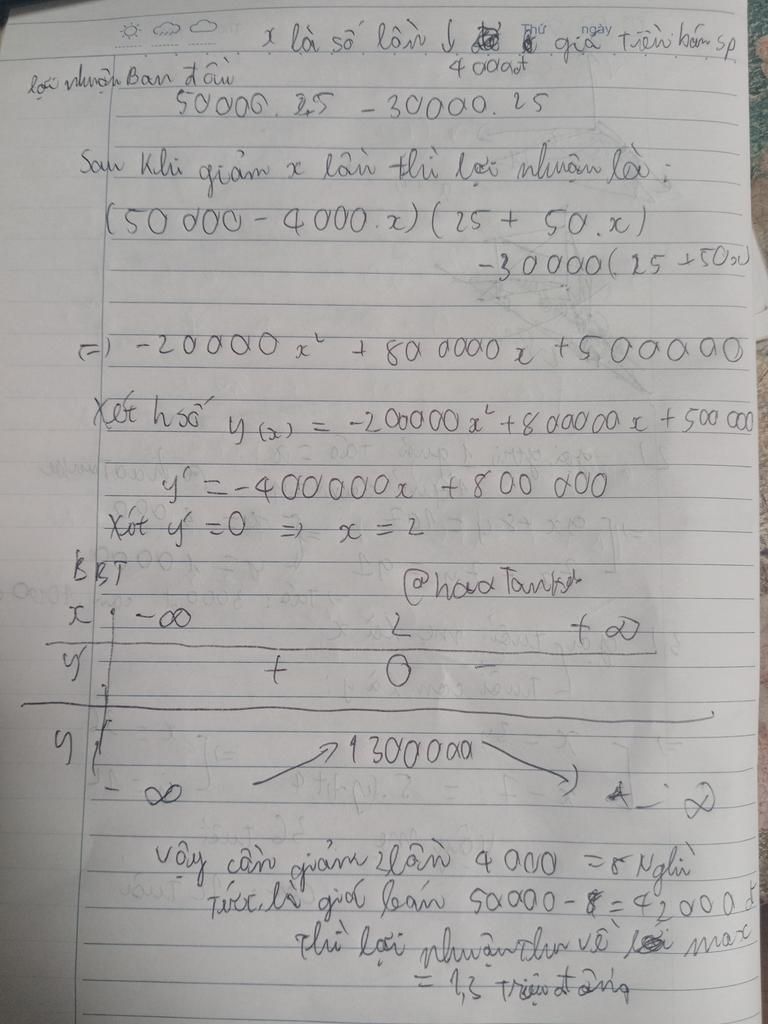 x là số lần ↓ giá tiền bán sp
Thứ ngày
4000đ
lợi nhuận Ban đầu
50000. 25 - 30000. 25
Sau khi giảm x lần thì lợi nhuận là:
(50000 - 4000.x)(25 + 50.x)
-30000(25 + 50x)
(=) -200000x² + 800000x + 500000
Xét h số y(x) = -200000x² + 800000x + 500000
y' = -400000x + 800 000
Xét y' = 0 => x = 2
BBT
x -∞ 2 +∞
y' + 0 -
y 1300000
-∞ -∞
Vậy cần giảm 2 lần 4000 = 8 Nghìn
Tức là giá bán 50000 - 8 = 42000đ
thì lợi nhuận thu về max
= 1,3 Triệu đồng